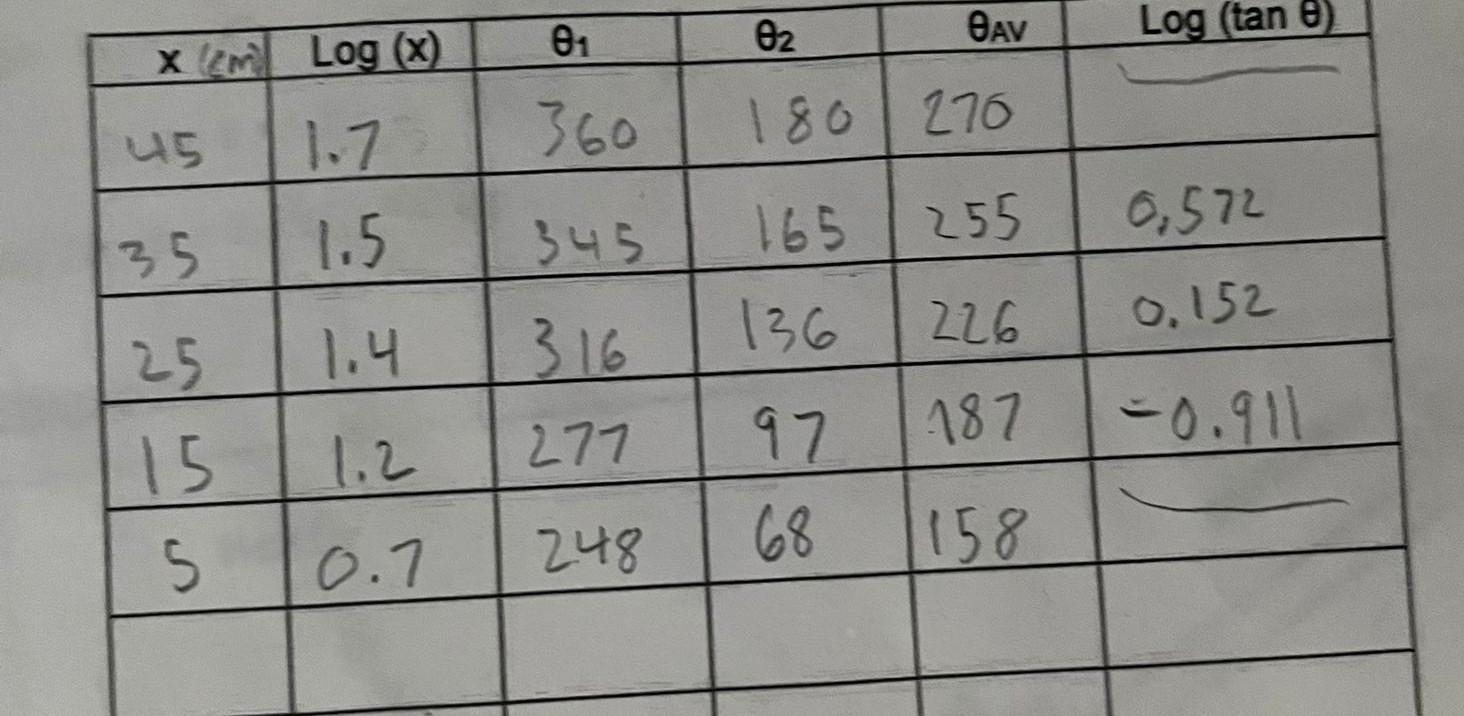 x (cm) Log (x) θ1 θ2 θAV Log (tan θ)
45 1.7 360 180 270
35 1.5 345 165 255 0,572
25 1.4 316 136 226 0.152
15 1.2 277 97 187 -0.911
5 0.7 248 68 158